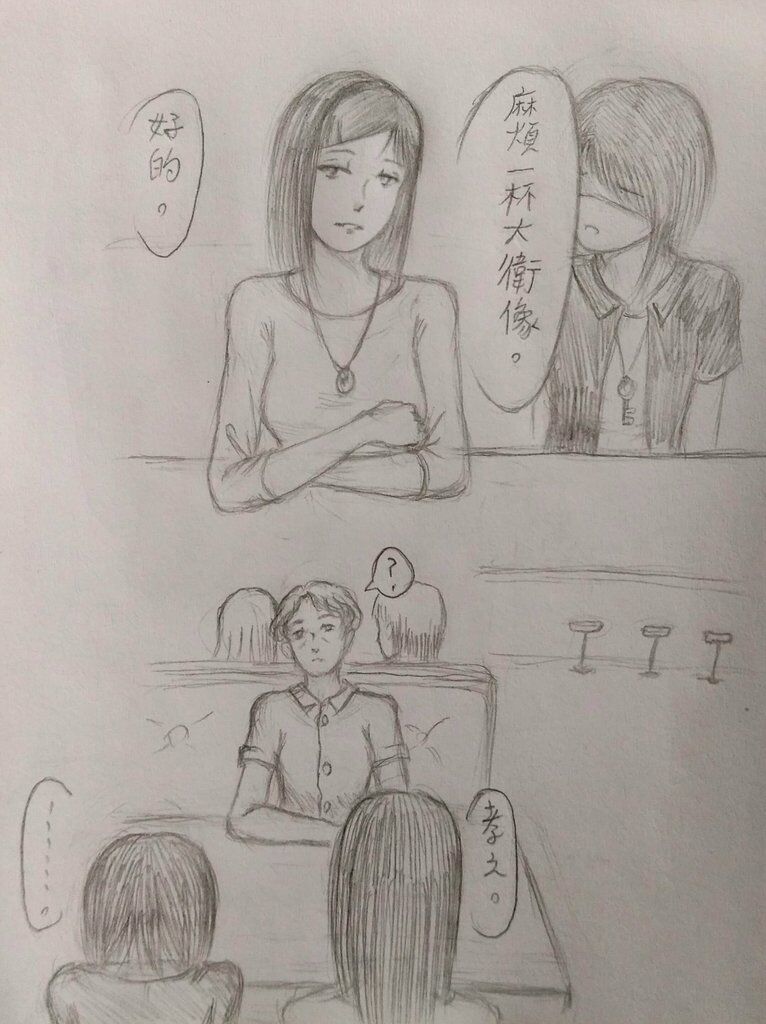 麻煩一杯大衛像。
好的。
?
孝之。
………